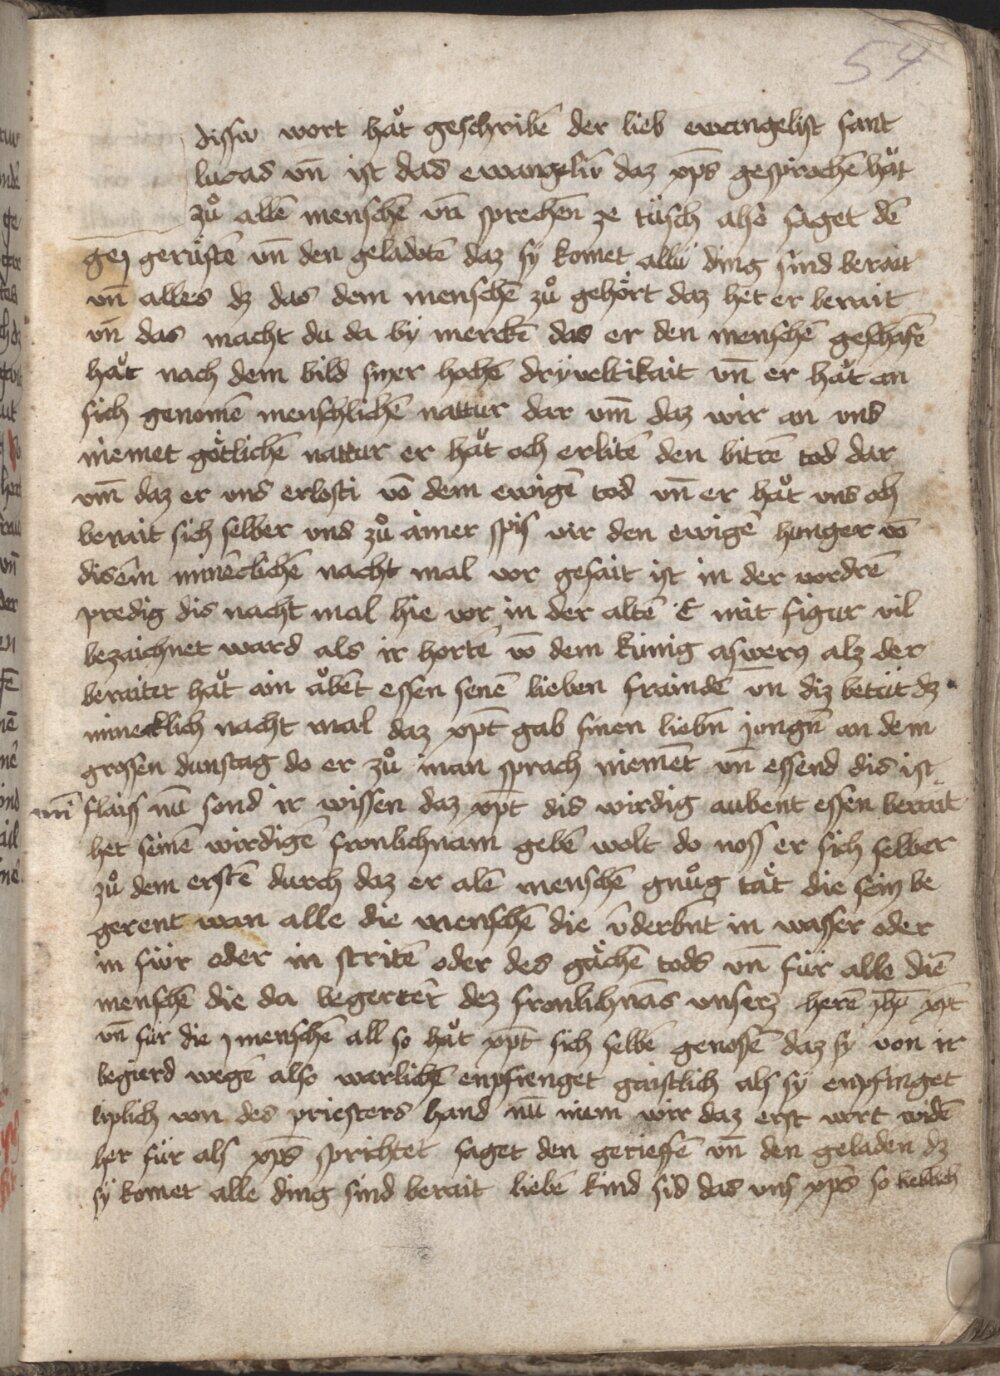 54
disser wort haͦt geschribē der lieb ewangelist sant
lucas vn̄ ist das ewangelin̄ daz xp̄s gesprochē haͦt
zuͦ allē menschē vn̄ sprechen ze tüsch also saget dē
gei geruͤstē vn̄ den geladotē daz sy komet allü ding sind berait
vn̄ alles dz das dem menschē zuͦ gehoͤrt daz het er berait
vn̄ das macht du da by merckē das er den menschē geschafē
haͦt nach dem bild siner hochē dryveltikait vn̄ er haͦt an
sich genomē menschlichē nattur dar vm̄ daz wir an vns
niemet goͤtlichē nattur er haͦt och erlitē den bitrē tod dar
vm̄ daz er vns erlosti vō dem ewigē tod vn̄ er haͦt vns och
berait sich selber vns zuͦ ainer spis vir den ewigē hunger vō
disem̄ minēclichē nacht mal vor gesait ist in der vordrē
predig dis nacht mal hie vor in der altē E mit figur vil
bezaichnet ward als ir hortē vō dem künig aswerꝯ alz der
beraitet haͦt ain aͦbēt essen senē lieben fraindē vn̄ diz betüt dz
minecklich nacht mal daz xp̄t gab sinen liebn̄ jongn̄ an dem
grossen dunstag do er zuͦ inan sprach niemēt vn̄ essend dis ist
min̄ flaiß nū sond ir wissen daz xp̄t dis wirdig aubent essen berait
het seinē wirdigē fronlichnam gebē wolt do noss er sich selber
zuͦ dem erstē durch daz er alē menschē gnuͦg taͤt die sein be
gerent wan alle die menschē die v̄derbn̄t in wasser oder
in fü̈r oder in stritē oder des gaͤchē tods vn̄ für alle diē
menschē die da begertēt dez fronlichnās vnserz herē ih̄u xp̄t
vn̄ für die menschē all so haͦt xp̄t sich selbē genossē daz sy von ir
begierd wegē also warlichē enpfienget gaistlich als sy enpfinget
liplich von des priesters hand nū niem wir daz erst wort widē
her für als xp̄s sprichtet saget den geriessē vn̄ den geladen dz
sy komet alle ding sind berait liebē kind sid das vns xp̄s so lieblich